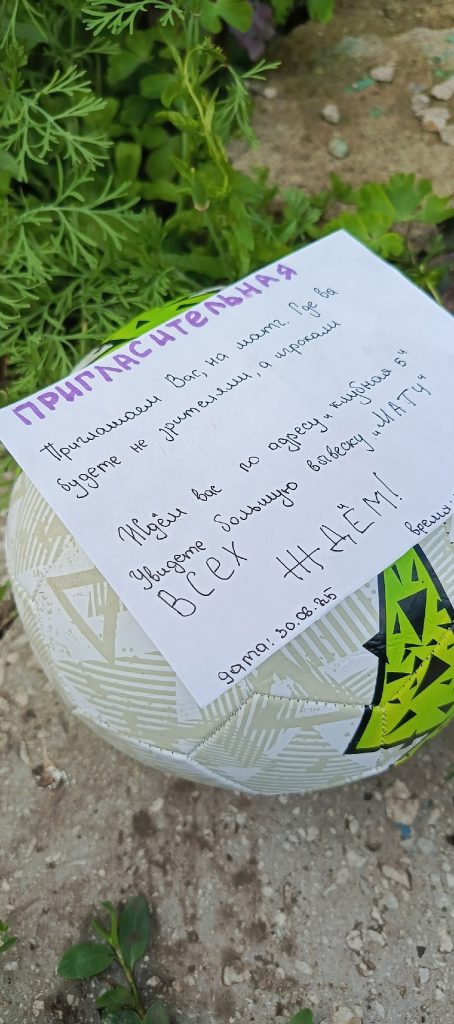 ПРИГЛАСИТЕЛЬНАЯ
Приглашаем Вас, на матч. Где вы
будете не зрителями, а игроками
Ждём вас по адресу "клубная 5"
Увидете большую вывеску "МАТЧ"
ВСЕХ ЖДЁМ!
дата: 30.06.25
время